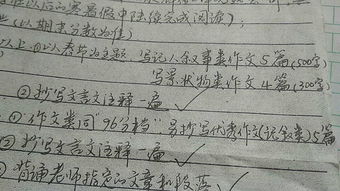 以后的寒暑假中陆续完成阅读);
(以期末分数为准)
以上:①以春节为主题,写记人叙事类作文5篇(500字)
写景状物类作文4篇(300字)
②抄写文言文注释一遍
①作文类同"96分档",另抄写优秀作文(记叙类)5篇
②抄写文言文注释一遍
背诵老师指定的文章和段落